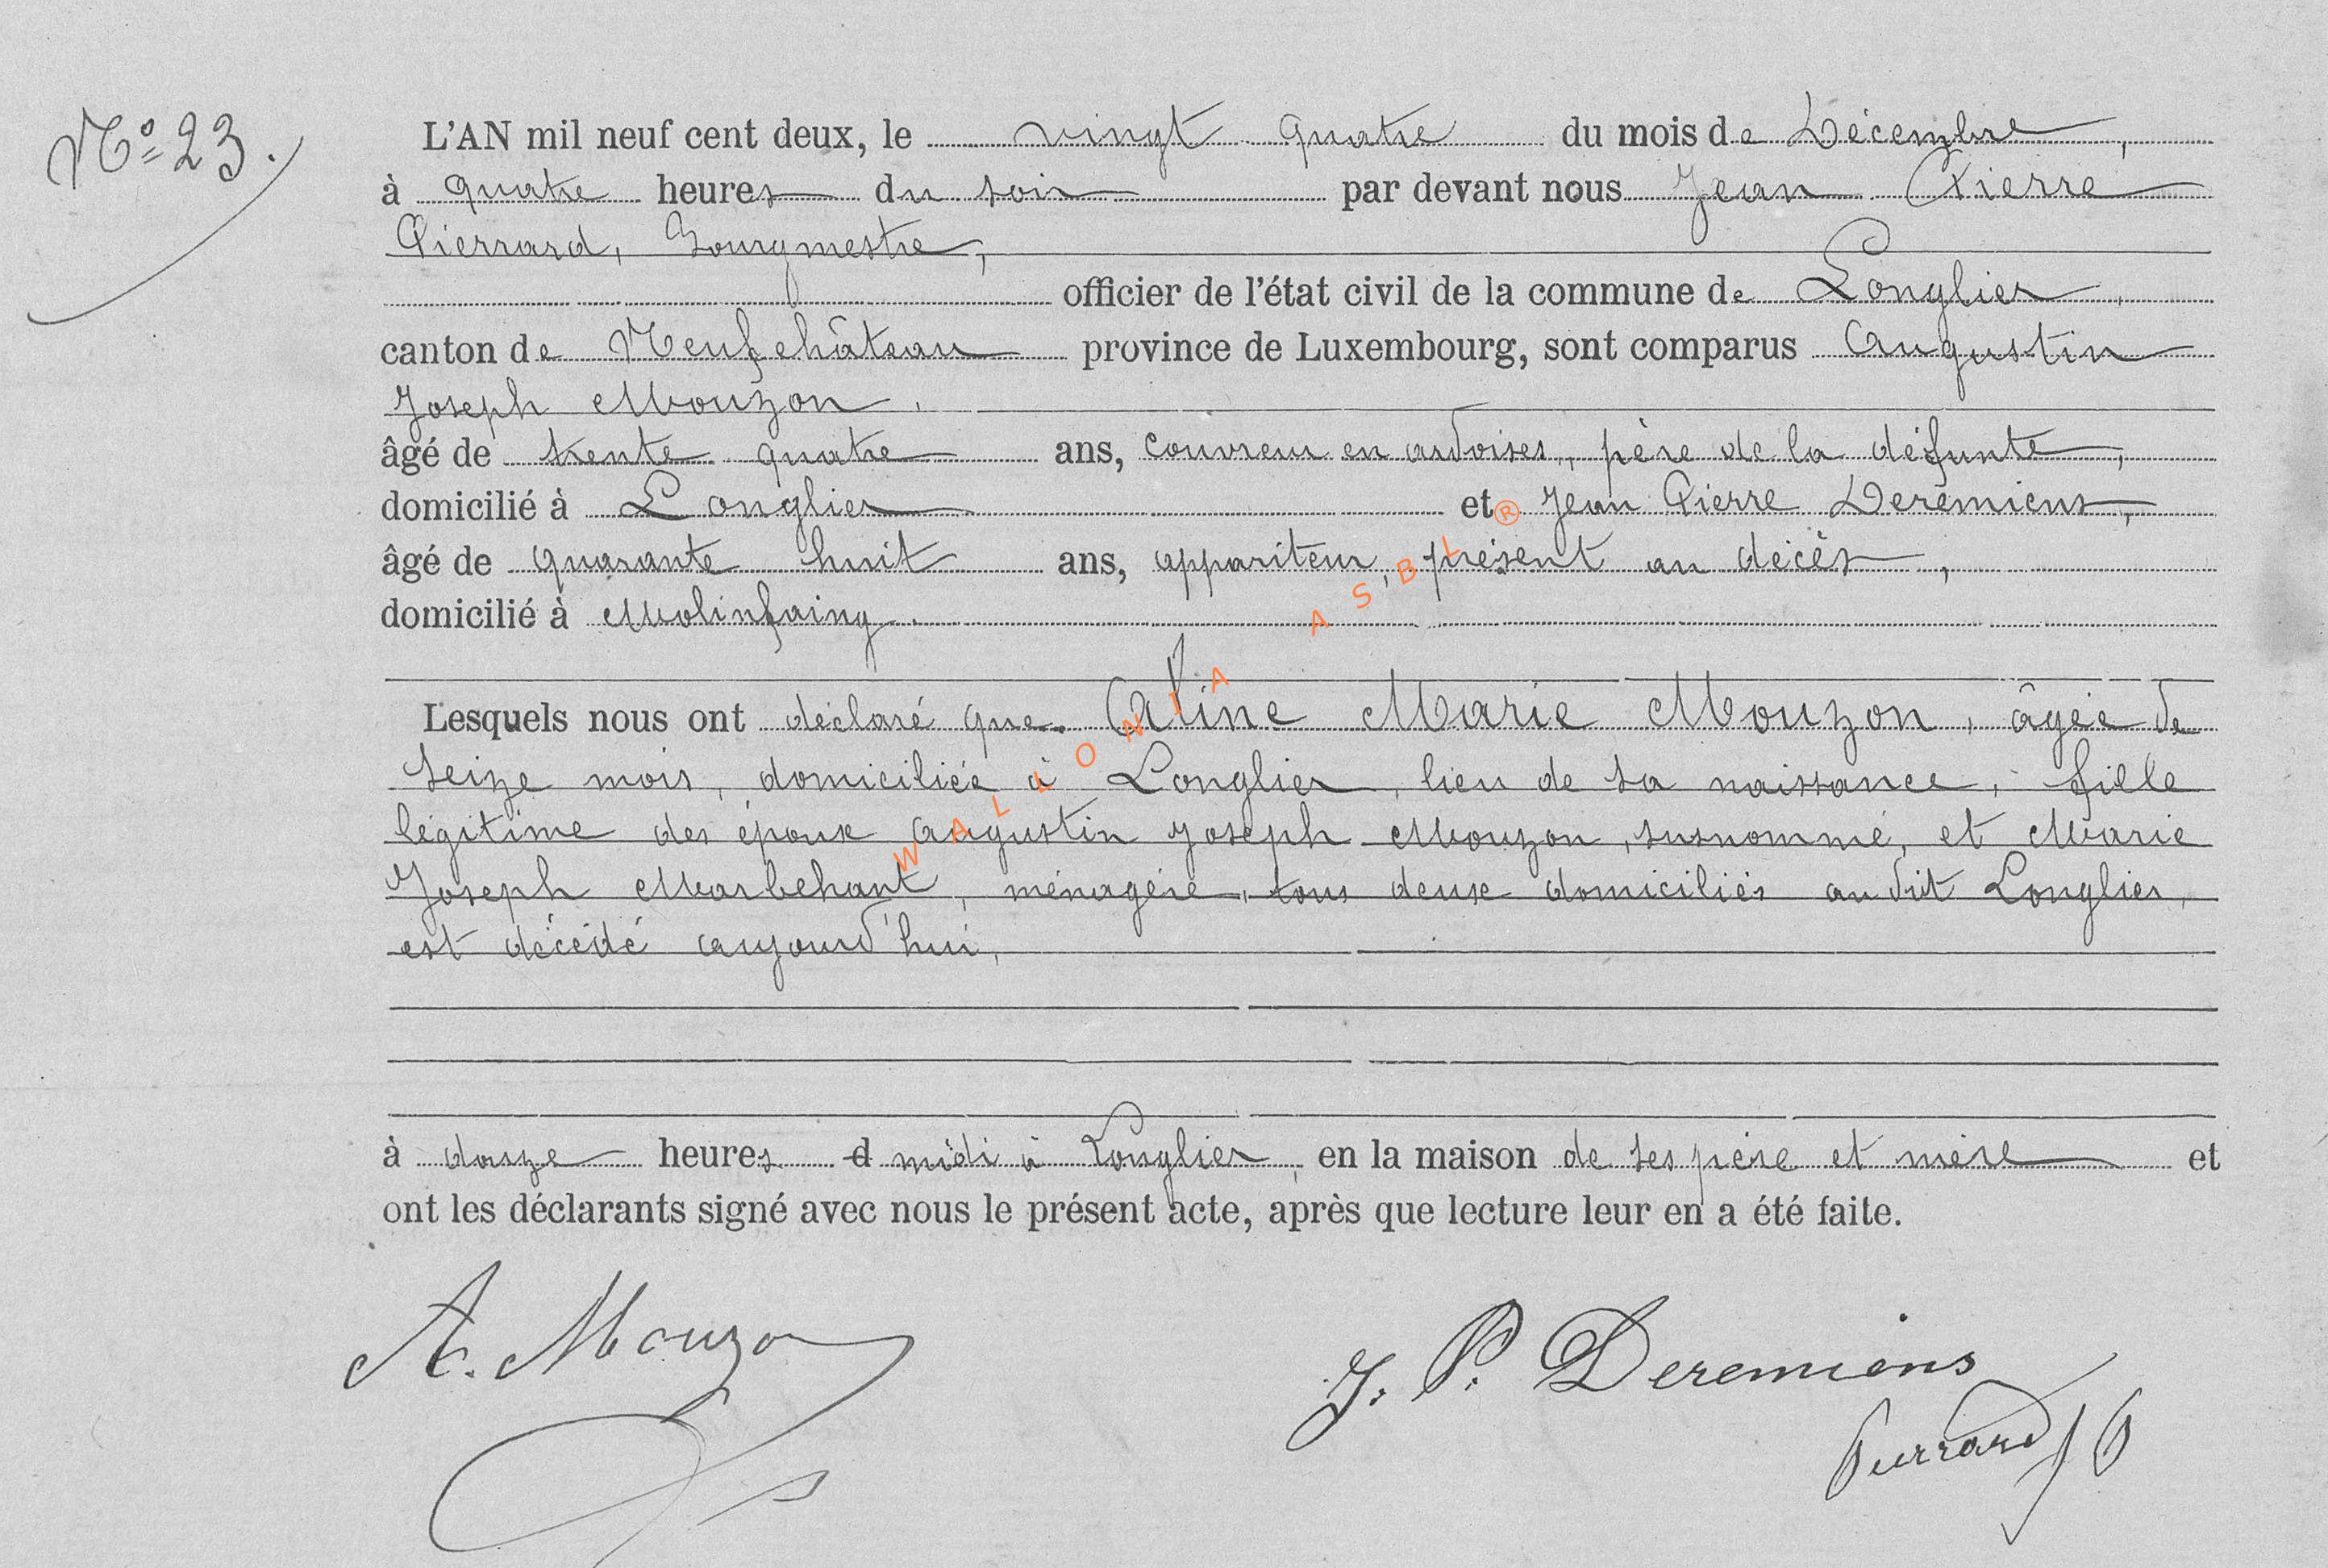 Nº 23.
L'AN mil neuf cent deux, le vingt quatre du mois de Décembre,
à quatre heures du soir par devant nous Jean Pierre
Pierrard, Bourgmestre,
officier de l'état civil de la commune de Longlier,
canton de Neufchâteau province de Luxembourg, sont comparus Augustin
Joseph Mouzon.
âgé de trente quatre ans, couvreur en ardoises, père de la défunte,
domicilié à Longlier et Jean Pierre Deremiens,
âgé de quarante huit ans, appariteur, présent au décès,
domicilié à Molinfaing.
Lesquels nous ont déclaré que Aline Marie Mouzon, âgée de
seize mois, domiciliée à Longlier, lieu de sa naissance, fille
légitime des époux Augustin Joseph Mouzon, susnommé, et Marie
Joseph Marbehant, ménagère, tous deux domiciliés au dit Longlier,
est décédé aujourd'hui,
à douze heures d midi à Longlier, en la maison de ses père et mère et
ont les déclarants signé avec nous le présent acte, après que lecture leur en a été faite.
A. Mouzon
J. P. Deremiens
Pierrard JP
WALLONIA ASBL ®